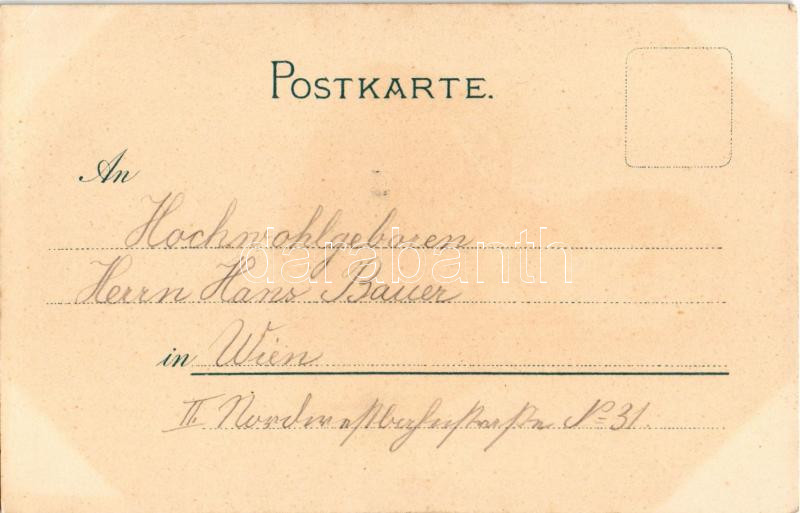 POSTKARTE.
An
Hochwohlgeboren
darabanth
Herrn Hans Bauer
in Wien
II. Nordwestbahnstraße No 31.